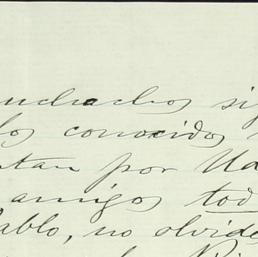 muchachos si
los conocidos
tan por Ud
amigos tod
Pablo, no olvide